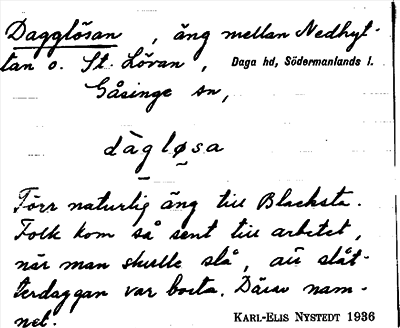 Dagglösan, äng mellan Nedhyt-
tan o. St. Lövan, Daga hd, Södermanlands l.
Gåsinge sn,
dàgløsa
Förr naturlig äng till Blacksta.
Folk kom så sent till arbetet,
när man skulle slå, att slåt-
terdaggan var borta. Därav nam-
net. KARL-ELIS NYSTEDT 1936